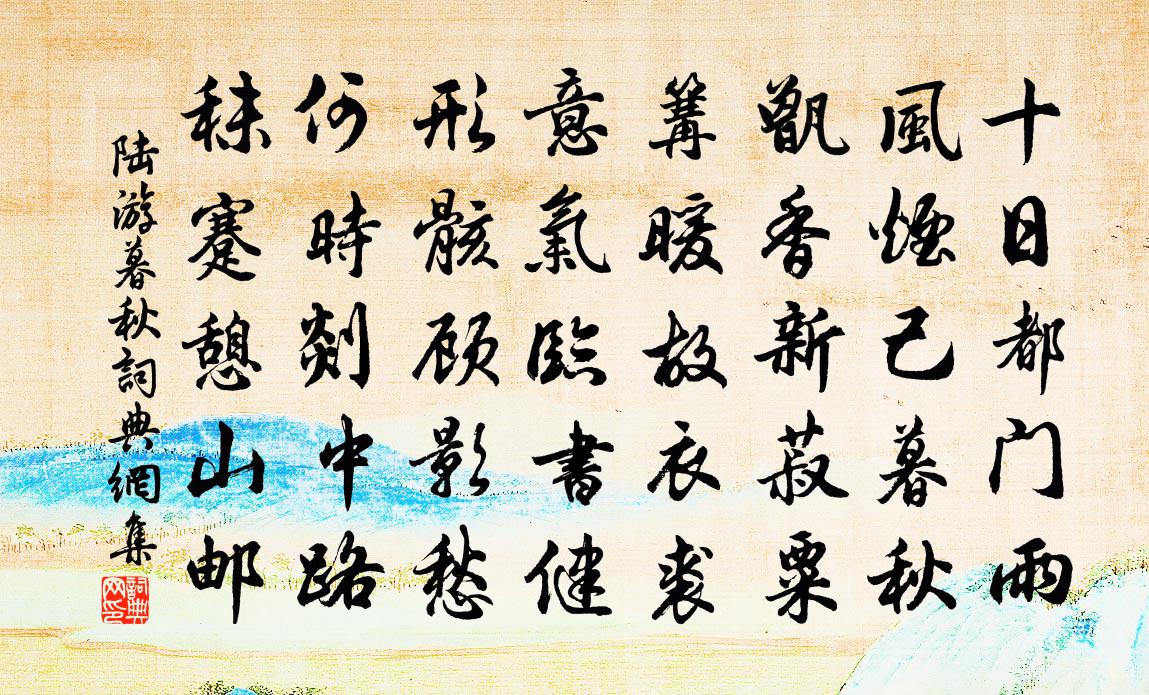 十日都门雨
風煙已暮秋
甑香新菽粟
篝暖故衣裘
意氣臨書健
形骸顾影愁
何時剡中路
秣蹇憩山邮
陆游暮秋詞典網集
詞典网印